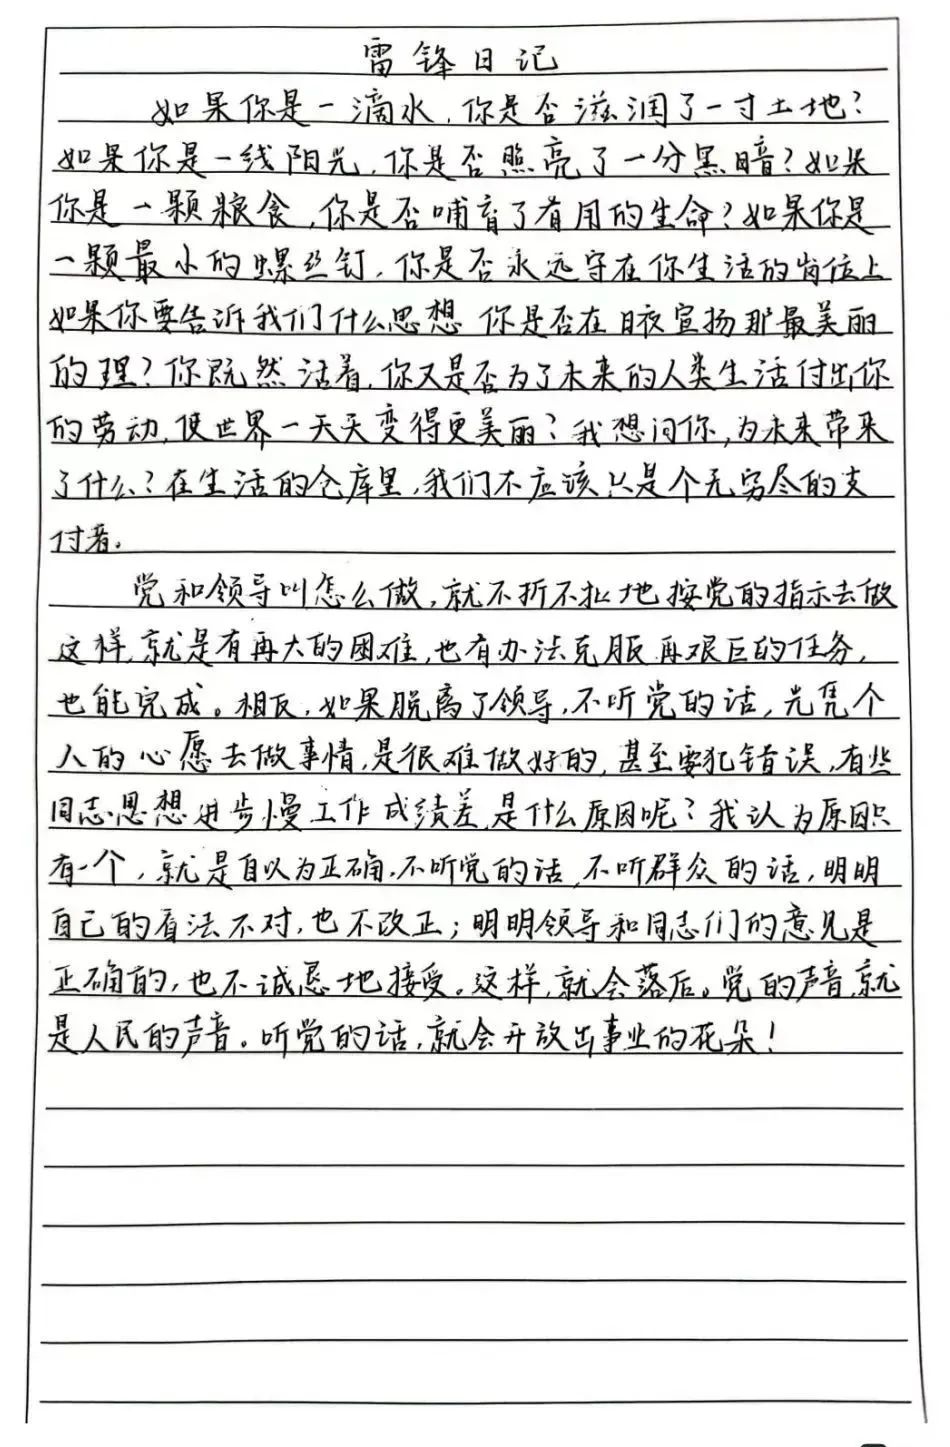 雷锋日记
如果你是一滴水,你是否滋润了一寸土地?
如果你是一线阳光,你是否照亮了一分黑暗?如果
你是一颗粮食,你是否哺育了有用的生命?如果你是
一颗最小的螺丝钉,你是否永远守在你生活的岗位上
如果你要告诉我们什么思想 你是否在日夜宣扬那最美丽
的理?你既然活着,你又是否为了未来的人类生活付出你
的劳动,使世界一天天变得更美丽?我想问你,为未来带来
了什么?在生活的仓库里,我们不应该只是个无穷尽的支
付者。
党和领导叫怎么做,就不折不扣地按党的指示去做
这样,就是有再大的困难,也有办法克服再艰巨的任务,
也能完成。相反,如果脱离了领导,不听党的话,光凭个
人的心愿去做事情,是很难做好的,甚至要犯错误,有些
同志思想进步慢工作成绩差,是什么原因呢?我认为原因只
有一个,就是自以为正确,不听党的话,不听群众的话,明明
自己的看法不对,也不改正;明明领导和同志们的意见是
正确的,也不诚恳地接受。这样,就会落后。党的声音,就
是人民的声音。听党的话,就会开放出事业的花朵!